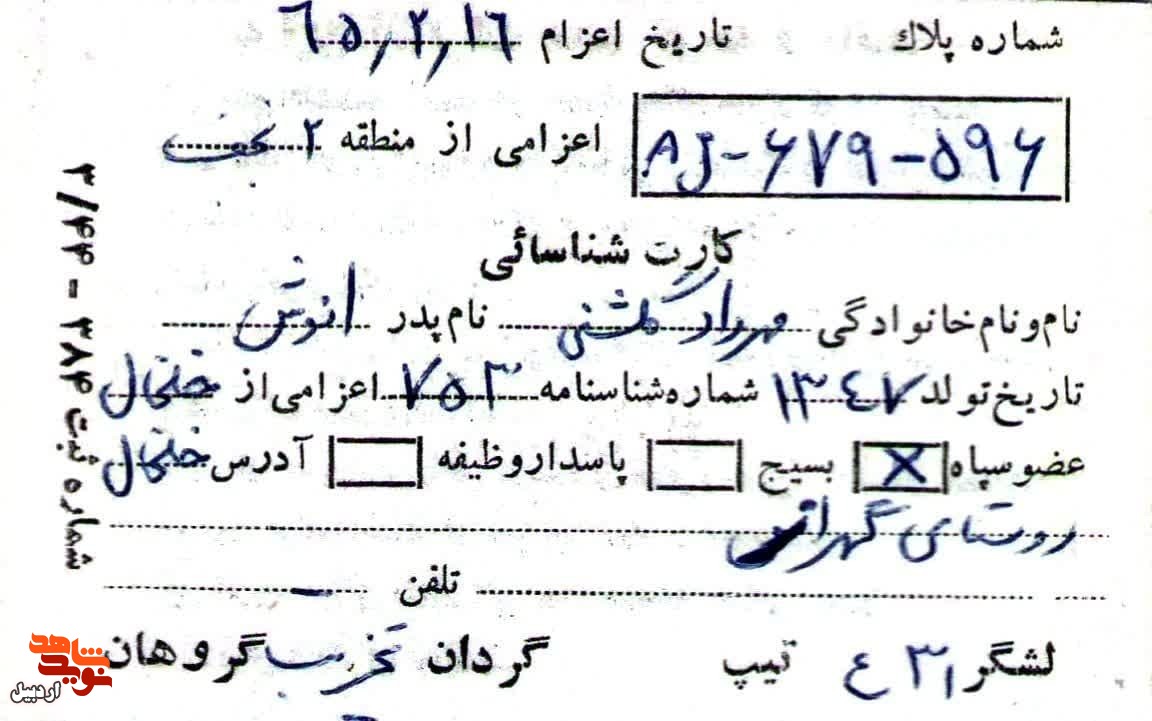 شماره پلاك تاریخ اعزام ۶۵,۲,۱۶
AJ-۶۷۹-۵۹۶ اعزامی از منطقه ۲ نجف
کارت شناسائی
نام و نام خانوادگی مهرداد گلشنی نام پدر انوش
تاریخ تولد ۱۳۴۷ شماره شناسنامه ۷۵۳ اعزامی از خلخال
عضو سپاه X بسیج پاسدار وظیفه آدرس خلخال
روستای
تلفن –
لشگر ۳۱ ع تیپ گردان تخریب گروهان
شماره ثبت ۳۸۴ - ۳/۴۴
شاهد
نوید
اردبیل